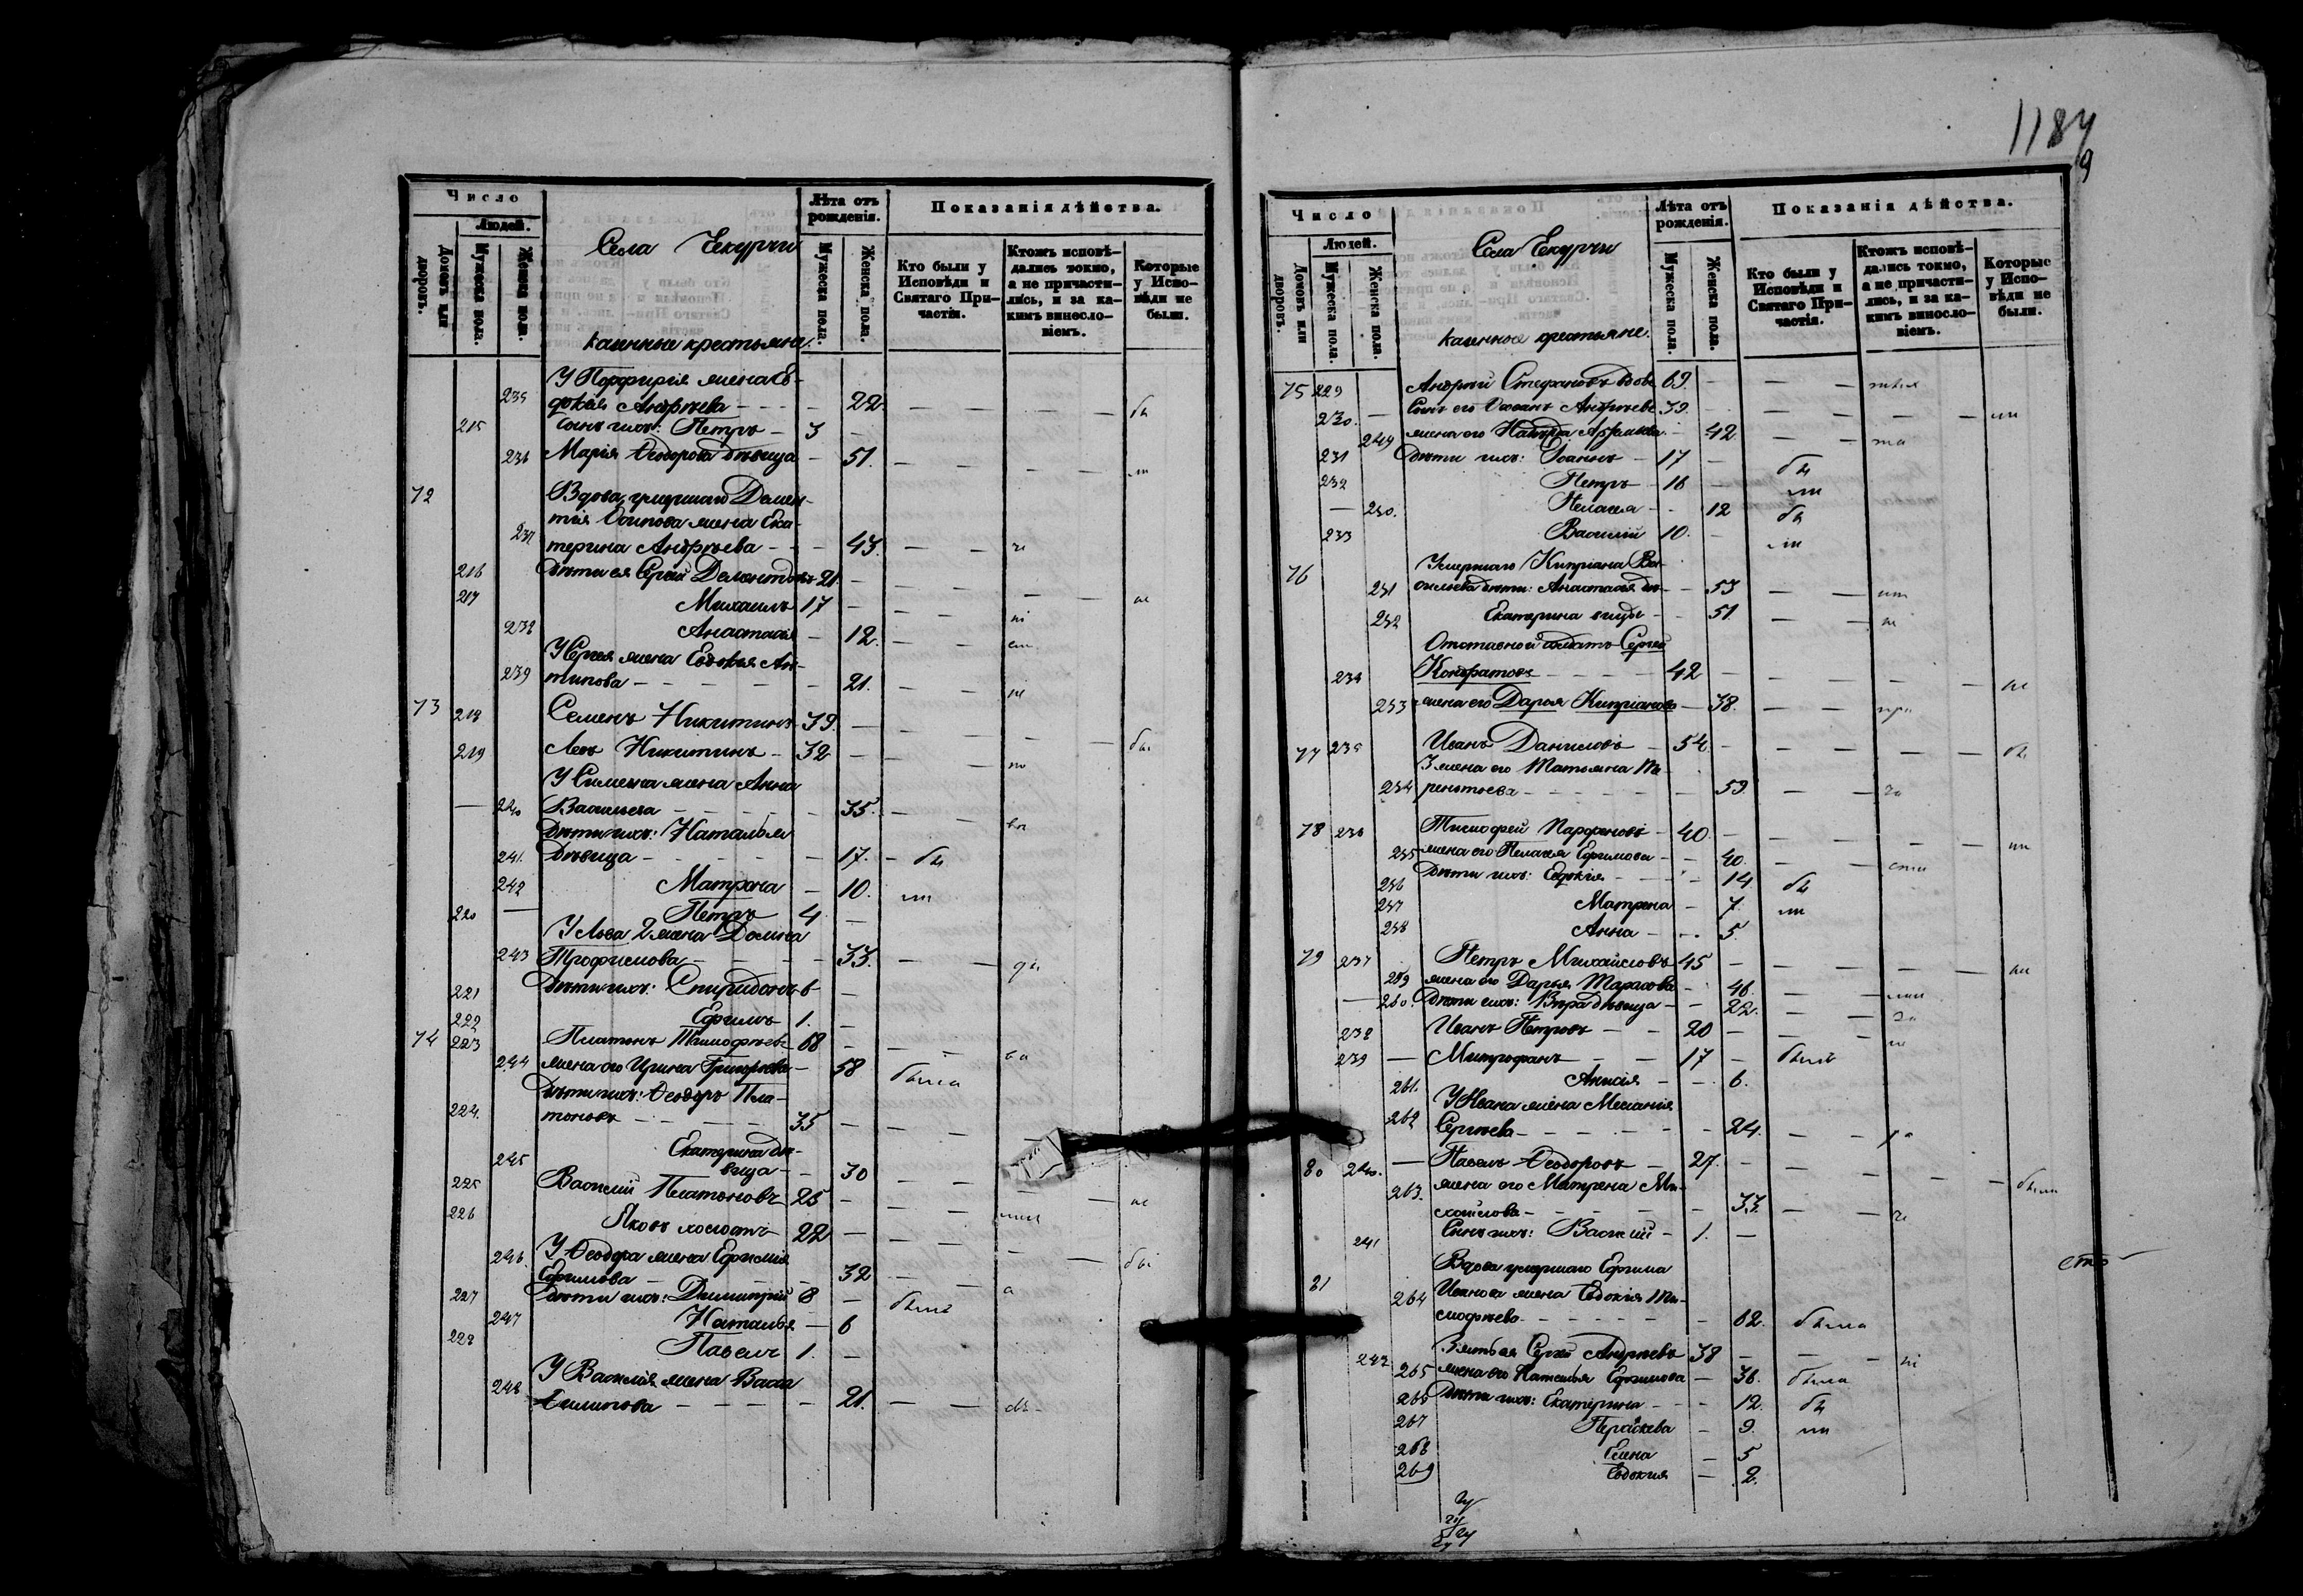 Число
Людей.
Домовъ или дворовъ.
Мужеска пола.
Женска пола.
Села Екурчи
казенные крестьяне.
Лѣта отъ рожденія.
Мужеска пола.
Женска пола.
Показанія дѣйства.
Кто были у Исповѣди и Святаго Причастія.
Ктожъ исповѣдались токмо, а не причастились, и за какимъ винословіемъ.
Которые у Исповѣди не были.
У Порфирія жена Ев-
235 докія Андрѣева - 22
215 Сынъ ихъ: Петръ - 3
236 Марія Ѳеодорова дѣвица - 51.
72 Вдова умершаго Демен-
тія Осипова жена Ека-
237 терина Андрѣева - 43.
216 Дѣти ея Сергѣй Дементьевъ 21.
217 Михаилъ 17
238 Анастасія - 12.
У Сергея жена Евдокія Ан-
239 типова - 21.
73 218 Семенъ Никитинъ 39.
219 Левъ Никитинъ - 32
У Симеона жена Анна
240 Васильева - 35.
Дѣти ихъ: Наталья
241. Дѣвица - 17.
242 Матрона - 10.
220 Петръ 4
У Льва 2 жена Домна
243 Трофимова - 33.
221 Дѣти ихъ: Спиридонъ 6
222 Ефимъ 1.
74 223 Платонъ Тимофѣевъ 68
244 жена его Ирина Григорьева - 58 была
Дѣти ихъ: Ѳеодоръ Пла-
224. тоновъ - 35
Екатерина дѣ-
245 вица - 30
225 Василій Платоновъ 25
226 Яковъ холостъ 22
246 У Ѳеодора жена Ефимія
Ефимова - 32
227 Дѣти ихъ: Димитрій 8 - былъ
247 Наталья - 6
228 Павелъ 1.
У Василія жена Васса
248 Филипова - 21.
1184
9
Число
Людей.
Домовъ или дворовъ.
Мужеска пола.
Женска пола.
Села Екурчи
казенные крестьяне.
Лѣта отъ рожденія.
Мужеска пола.
Женска пола.
Показанія дѣйства.
Кто были у Исповѣди и Святаго Причастія.
Ктожъ исповѣдались токмо, а не причастились, и за какимъ винословіемъ.
Которые у Исповѣди не были.
75 229 Андрей Стефановъ вдов. 69.
230. Сынъ его Иоаннъ Андрѣевъ 39.
249 жена его - 42
231 Дѣти ихъ: Иоаннъ - 17
232 Петръ - 16
250. Пелагея - 12
233 Василій 10.
76 Умершаго Кипріана Ва-
251 сильева дѣти: Анастасія дѣ- 53
252 Екатерина вицы - 51.
Отставной солдатъ Сергѣй
234 Кондратовъ - 42
253 жена его Дарья Кипріанова - 38.
77 235 Иванъ Даниловъ - 54.
жена его Татьяна Те-
254 рентьева - 59.
78 236 Тимофей Парфеновъ - 40
255 жена его Пелагея Ефимова - 40.
256 Дѣти ихъ: Евдокія - 14
257 Матрена - 7.
258 Анна - 5.
79 237 Петръ Михайловъ 45
259 жена его Дарья Тарасова - 46.
260. Дѣти ихъ: Вѣра дѣвица - 22.
238 Иванъ Петровъ - 20
239 Митрофанъ - 17 - былъ
261. Анисія - 6.
У Ивана жена Меланія
262 Сергѣева - 24.
80 240. Павелъ Ѳеодоровъ - 27.
263. жена его Матрена Ми-
хайлова - 33.
241 Сынъ ихъ: Василій - 1.
Вдова умершаго Ефима
81 264 Иванова жена Евдокія Ти-
мофѣева - 62. была
242 Зять ея Сергѣй Андрѣевъ 38
265 жена его Наталья Ефимова - 36. была
266 Дѣти ихъ: Екатерина - 12.
267 Параскева - 9.
268 Елена - 5
269 Евдокия - 2.